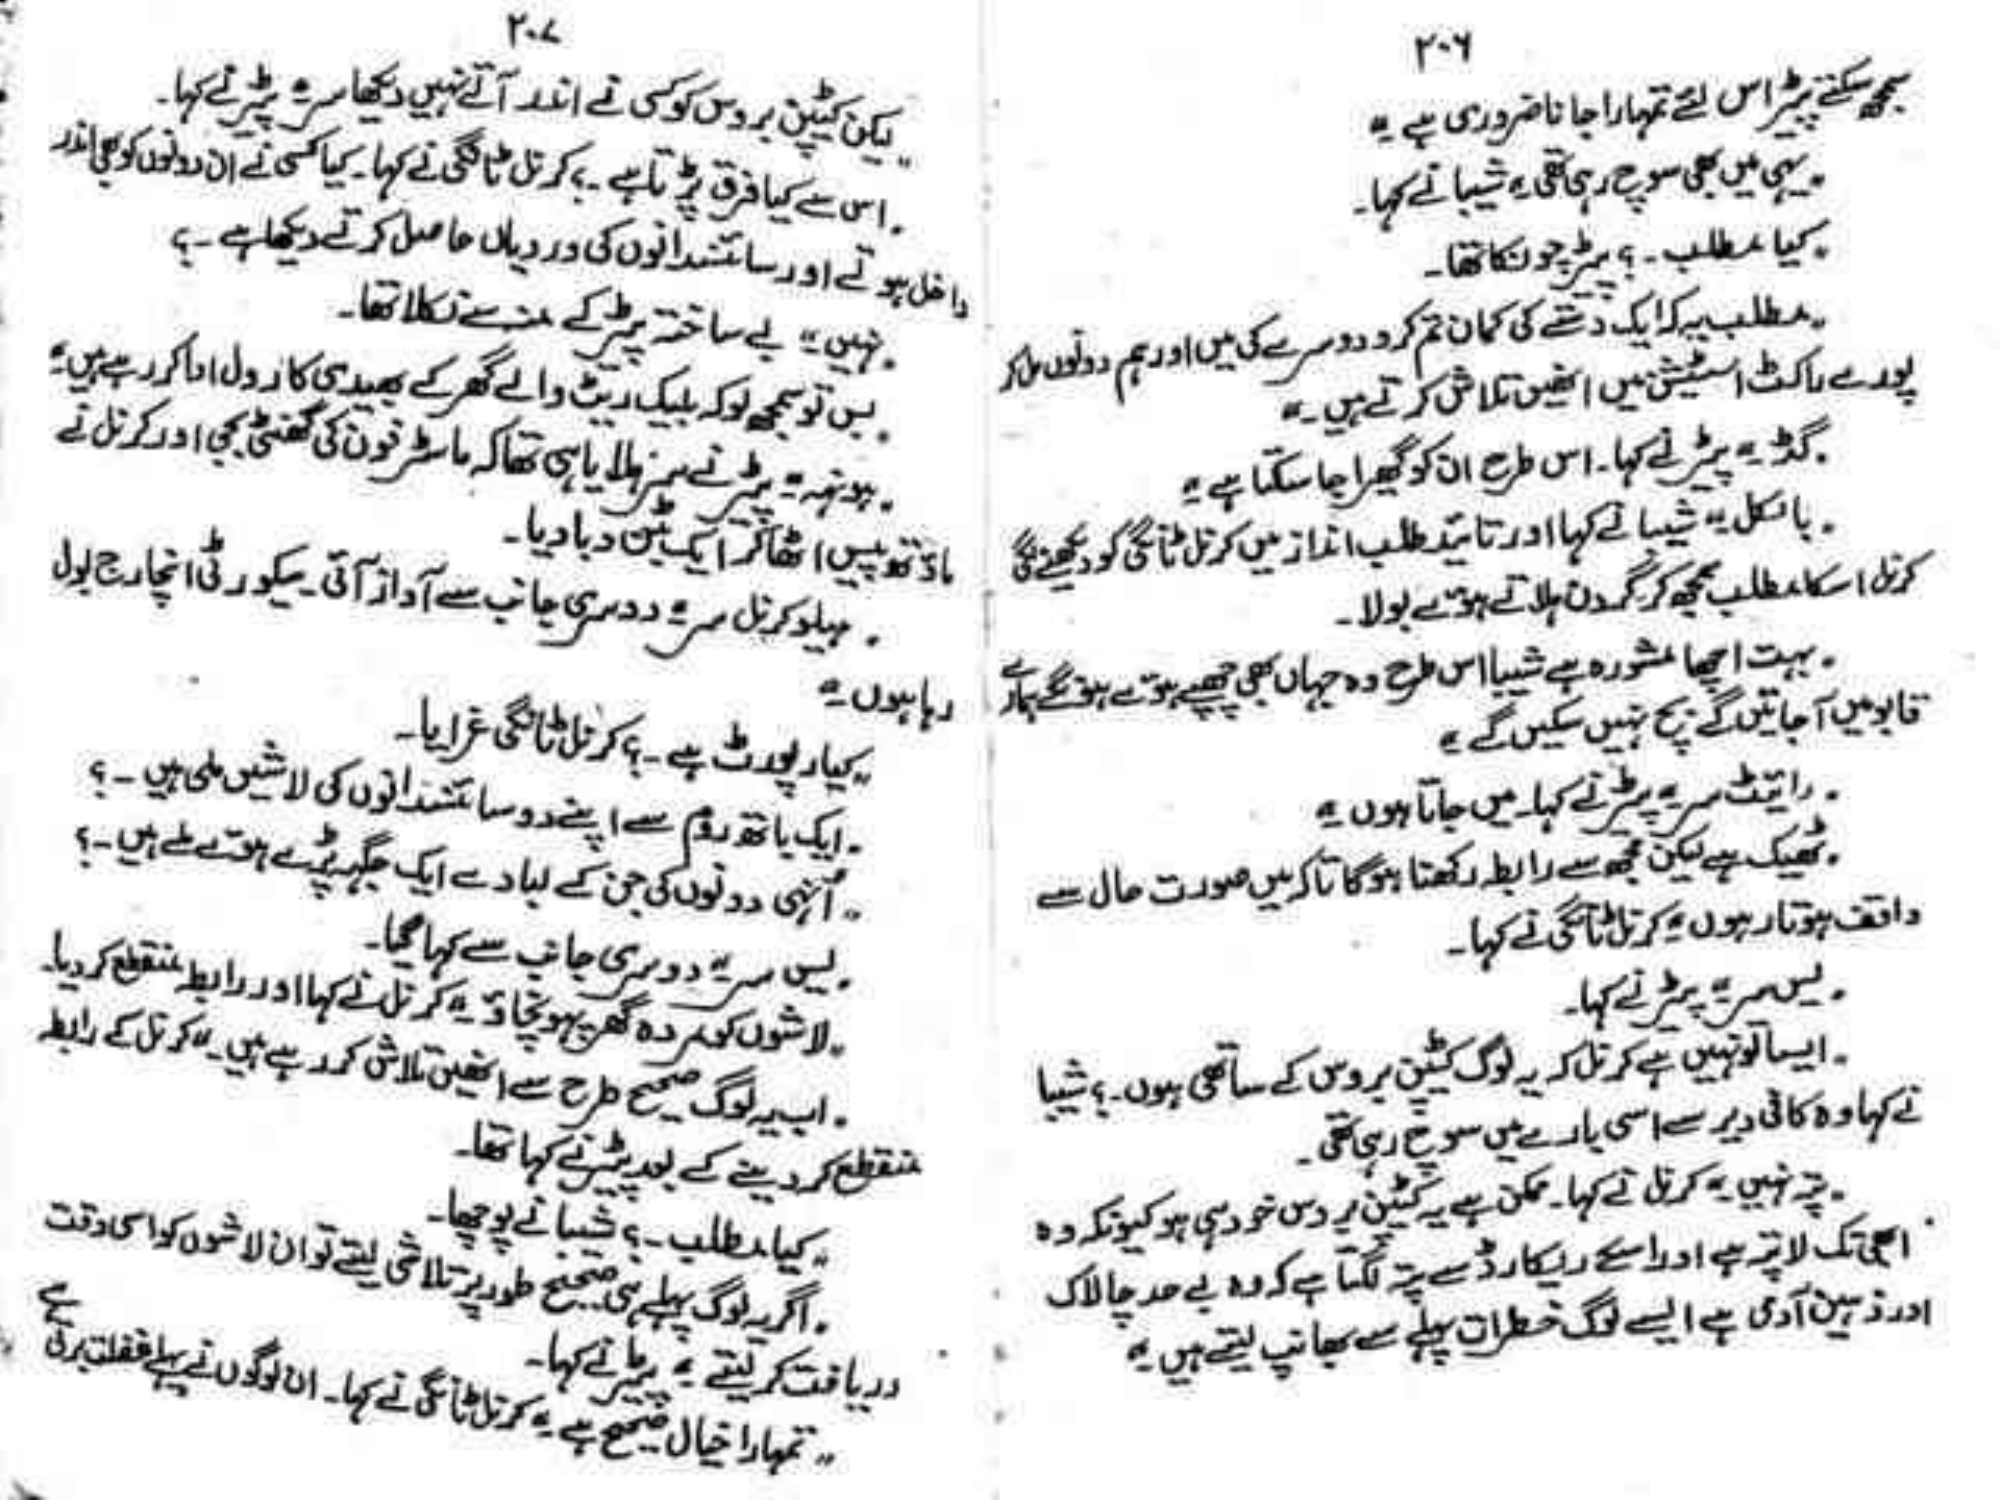 ۲۰۶
سمجھ سکتے پیٹر اس لئے تمہارا جانا ضروری ہے ۔"
"یہی میں بھی سوچ رہی تھی۔" شیبا نے کہا۔
"کیا مطلب۔؟ پیٹر چونکا تھا۔
"مطلب یہ کہ ایک دستے کی کمان تم کرو دوسرے کی میں اور ہم دونوں مل کر
پورے راکٹ اسٹیشن میں انھیں تلاش کرتے ہیں۔"
"گڈ۔" پیٹر نے کہا۔ اس طرح ان کو گھیرا جا سکتا ہے۔"
"بالکل۔" شیبا نے کہا اور تائید طلب انداز میں کرنل ٹانگی کو دیکھنے لگی
کرنل اسکا مطلب سمجھ کر گردن ہلاتے ہوئے بولا۔
"بہت اچھا مشورہ ہے شیبا اس طرح وہ جہاں بھی چھپے ہوئے ہونگے ہمارے
قابو میں آجائیں گے بچ نہیں سکیں گے۔"
"رائیٹ سر۔" پیٹر نے کہا۔ میں جاتا ہوں۔"
"ٹھیک ہے لیکن مجھ سے رابطہ رکھنا ہوگا تاکہ میں صورت حال سے
واقف ہوتا رہوں۔" کرنل ٹانگی نے کہا۔
"یس سر۔" پیٹر نے کہا۔
"ایسا تو نہیں ہے کرنل کہ یہ لوگ کیٹپن بروس کے ساتھی ہوں۔؟ شیبا
نے کہا وہ کافی دیر سے اسی بارے میں سوچ رہی تھی۔
"پتہ نہیں۔" کرنل نے کہا۔ ممکن ہے یہ کیٹپن بروس خود ہی ہو کیونکہ وہ
ابھی تک لاپتہ ہے اور اسکے ریکارڈ سے پتہ لگتا ہے کہ وہ بے حد چالاک
اور ذہین آدمی ہے ایسے لوگ خطرات پہلے سے بھانپ لیتے ہیں۔"
۲۰۷
"لیکن کیٹپن بروس کو کسی نے اندر آتے نہیں دیکھا سر۔" پیٹر نے کہا۔
"اس سے کیا فرق پڑتا ہے۔؟ کرنل ٹانگی نے کہا۔ کیا کسی نے ان دونوں کو بھی اندر
داخل ہوتے اور سائنسدانوں کی وردیاں حاصل کرتے دیکھا ہے۔؟
"نہیں۔" بے ساختہ پیٹر کے منہ سے نکلا تھا۔
"بس تو سمجھ لو کہ بلیک ریٹ والے گھر کے بھیدی کا رول ادا کر رہے ہیں۔"
"ہونہہ۔" پیٹر نے سر ہلایا ہی تھا کہ ماسٹر فون کی گھنٹی بجی اور کرنل نے
ماؤتھ پیس اٹھا کر ایک بٹن دبا دیا۔
"ہیلو کرنل سر۔" دوسری جانب سے آواز آئی۔ سیکورٹی انچارج بول
رہا ہوں۔"
"کیا رپورٹ ہے۔؟ کرنل ٹانگی غرایا۔
"ایک باتھ روم سے اپنے دو سائنسدانوں کی لاشیں ملی ہیں۔؟
"اُنہی دونوں کی جن کے لبادے ایک جگہ پڑے ہوئے ملے ہیں۔؟
"یس سر۔" دوسری جانب سے کہا گیا۔
"لاشوں کو مردہ گھر پہونچاؤ۔" کرنل نے کہا اور رابطہ منقطع کر دیا۔
"اب یہ لوگ صحیح طرح سے انھیں تلاش کر رہے ہیں۔" کرنل کے رابطہ
منقطع کر دینے کے بعد پیٹر نے کہا تھا۔
"کیا مطلب۔؟ شیبا نے پوچھا۔
"اگر یہ لوگ پہلے ہی صحیح طور پر تلاشی لیتے تو ان لاشوں کو اسی وقت
دریافت کر لیتے۔" پیٹر نے کہا۔
"تمہارا خیال صحیح ہے۔" کرنل ٹانگی نے کہا۔ ان لوگوں نے پہلے غفلت برتی ہے